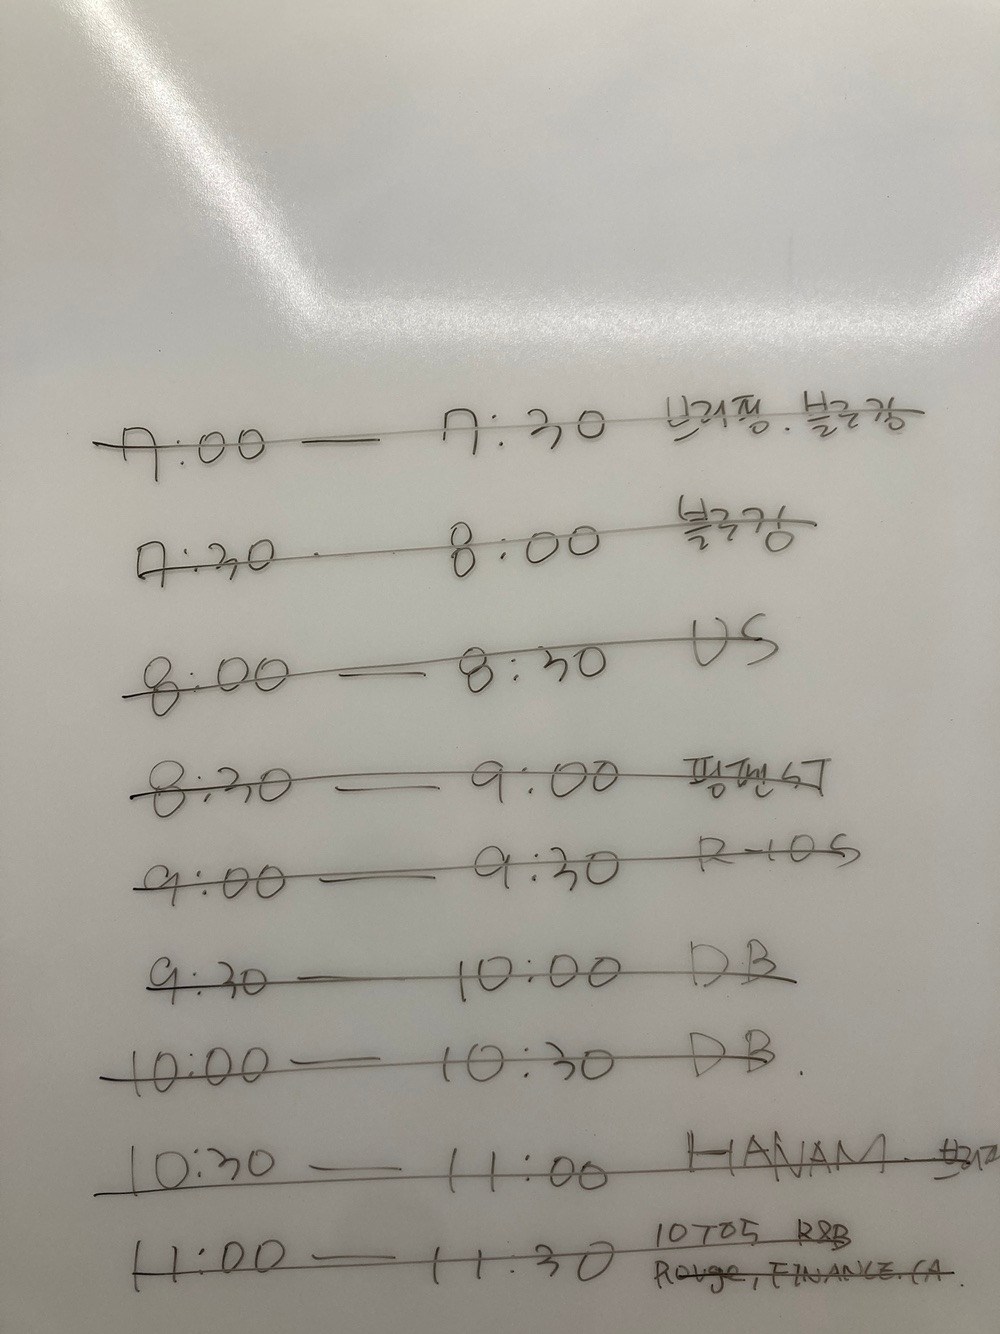 7:00 — 7:30 브리핑. 불금강
7:30 8:00 불금강
8:00 — 8:30 US
8:30 — 9:00
9:00 — 9:30 R-10S
9:30 — 10:00 DB
10:00 — 10:30 DB.
10:30 — 11:00 HANAM.
11:00 — 11:30 10T05 R&B
Rouge, FINANCE.CA.